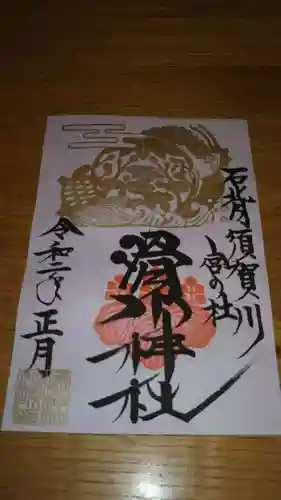 石背須賀川
宮の杜
滑川神社
令和二年
正月